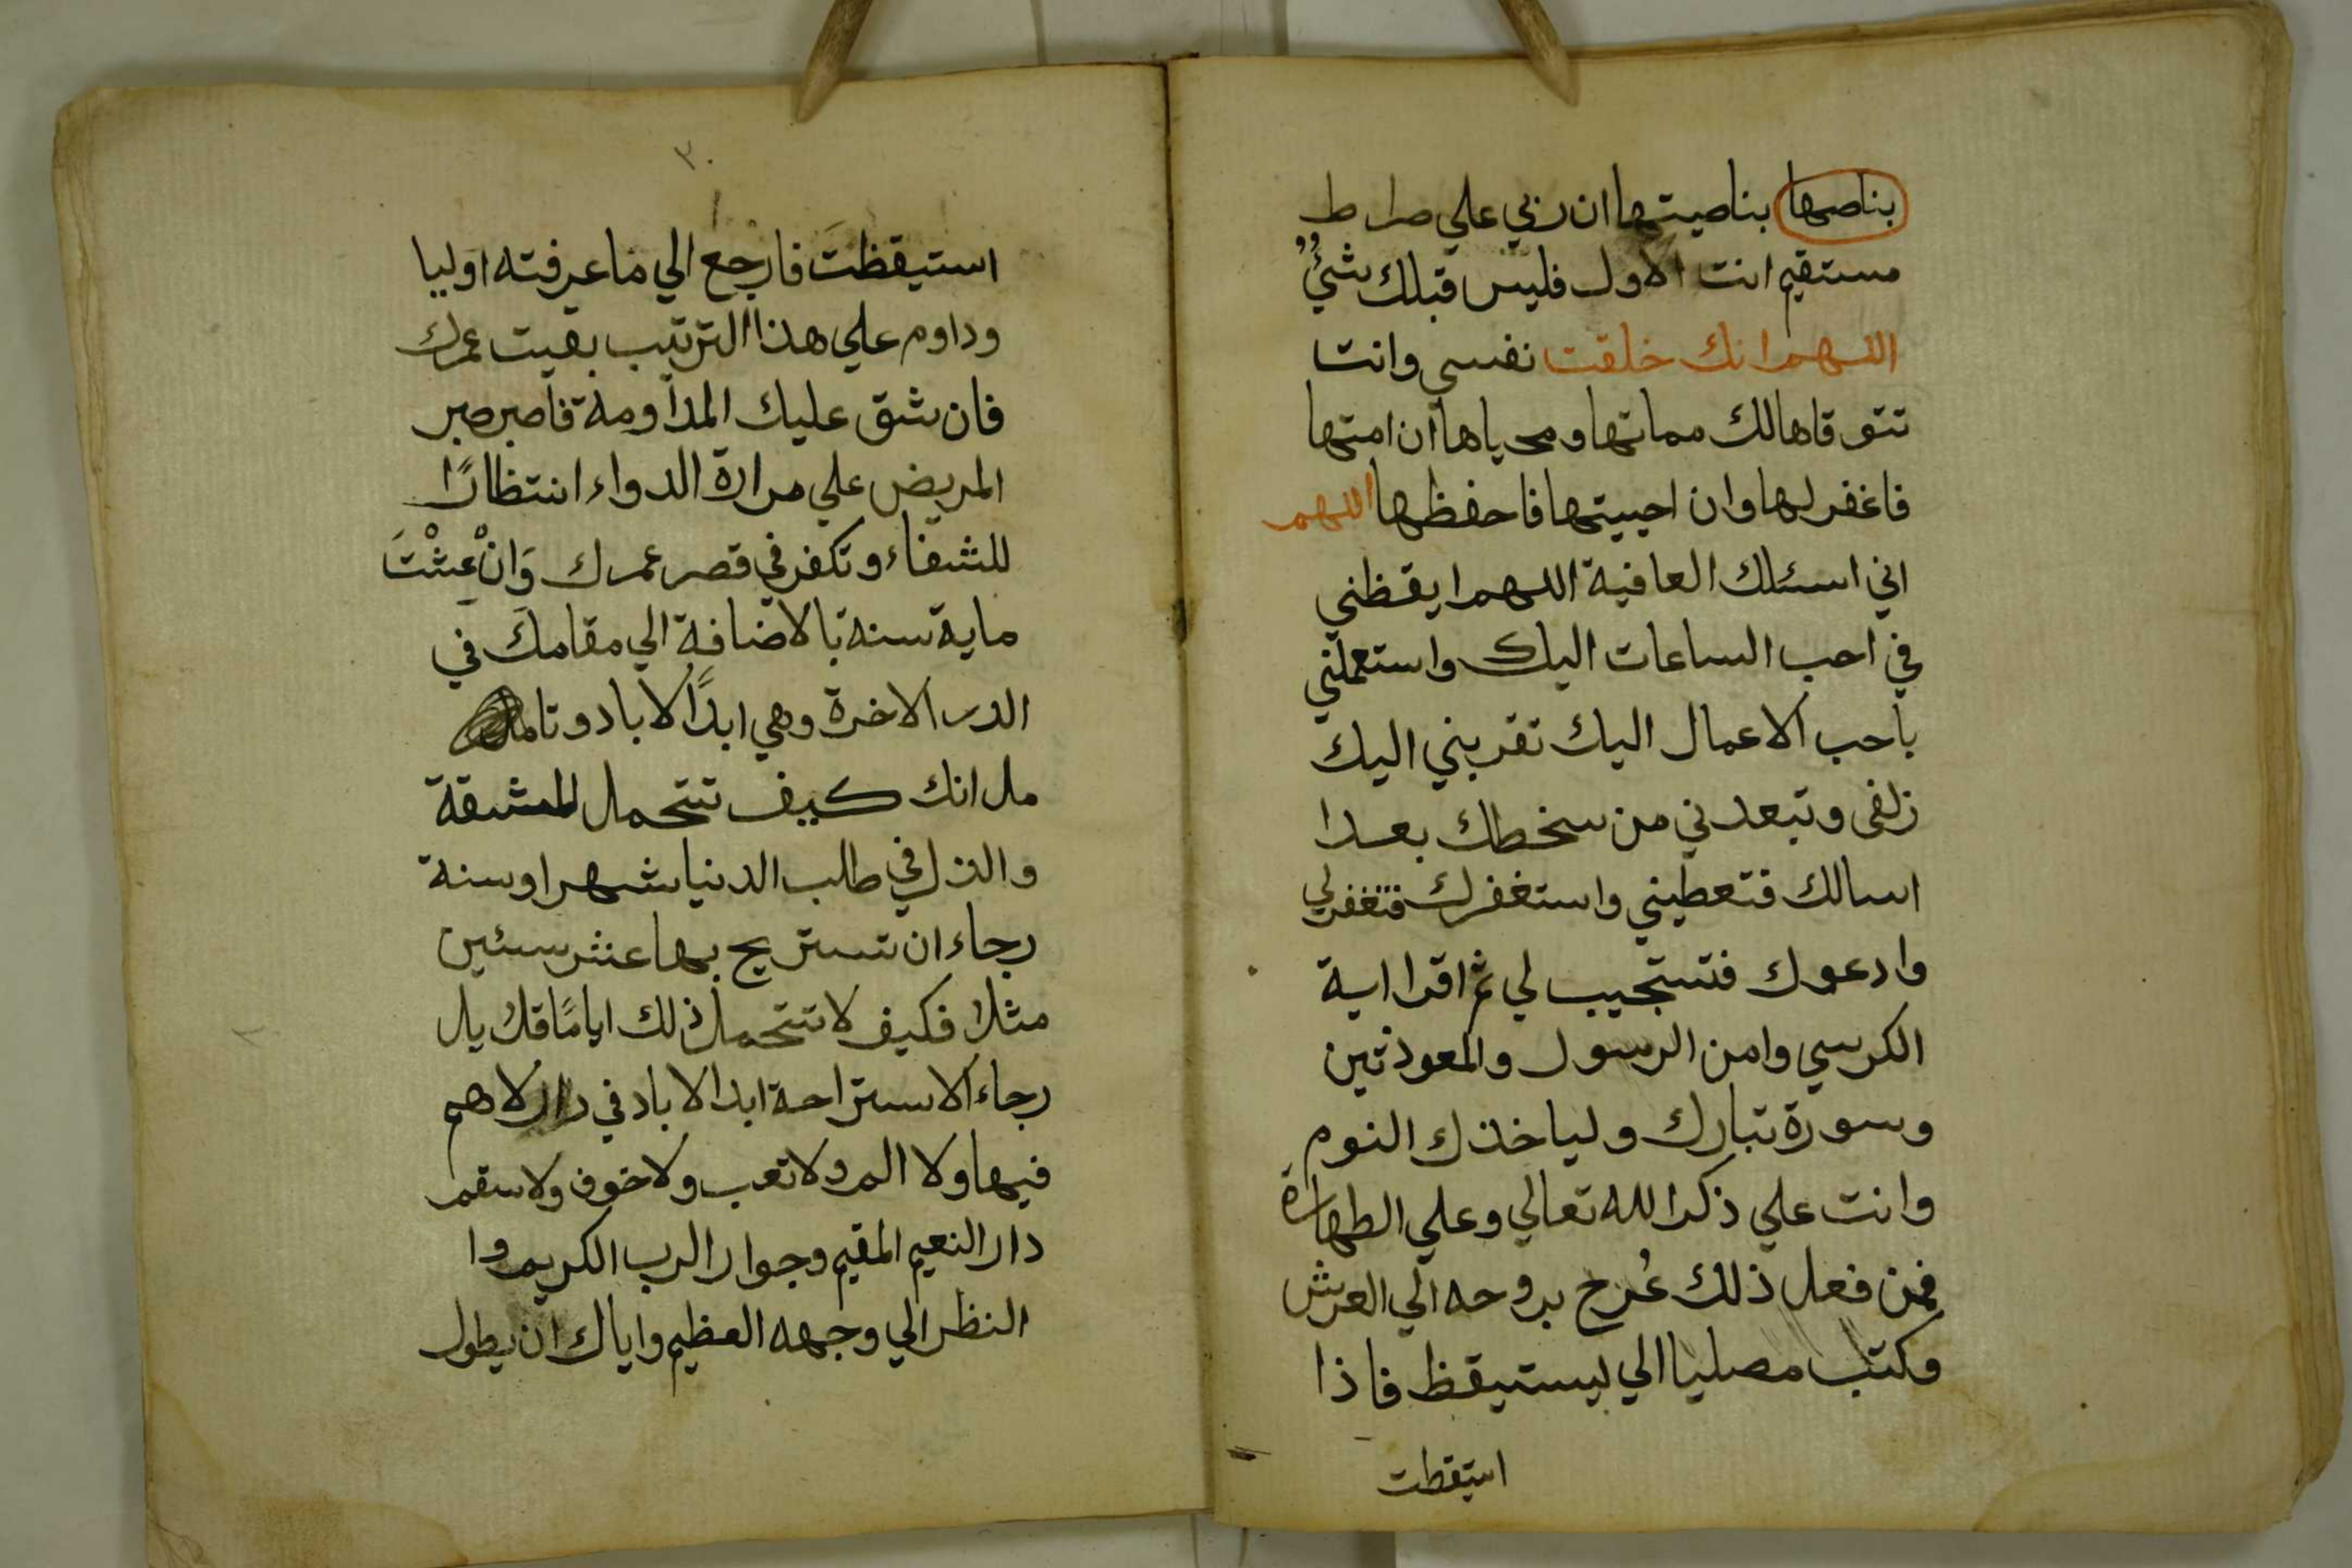 بناصها بناصيتها ان ربي علي صراط
مستقيم انت الاول فليس قبلك شيٌ
اللهم انك خلقت نفسي وانت
تتوقاها لك مماتها ومحياها ان امتها
فاغفر لها وان احييتها فاحفظها اللهم
اني اسئلك العافية اللهم ايقظني
في احب الساعات اليك واستعملني
باحب الاعمال اليك تقربني اليك
زلفى وتبعدني من سخطك بعدا
اسالك فتعطيني واستغفرك فتغفرلي
وادعوك فتستجيب لي ثم اقرا اية
الكرسي وامن الرسول والمعوذتين
وسورة تبارك ولياخذك النوم
وانت علي ذكر الله تعالي وعلي الطهارة
فمن فعل ذلك عُرج بروحه الي العرش
وكتب مصليا الي ليستيقظ فاذا
استقطت
٣٠
استيقظتَ فارجع الي ما عرفته اوليا
وداوم علي هذا الترتيب بقيت عمرك
فان شق عليك المداومة فاصبر صبر
المريض علي مرارة الدواء انتظارًا
للشفاء وتكفر في قصر عمرك وَانْ عِشْتَ
ماية سنة بالاضافة الي مقامك في
الدر الاخرة وهي ابدًا الاباد وتامل
مل انك كيف تتحمل المشقة
والذل في طلب الدنيا شهرا وسنة
رجاء ان تستريح بها عشر سنين
مثلا فكيف لا تتحمل ذلك ايامًا قلايل
رجاء الاستراحة ابد الاباد في دار لاهم
فيها ولا الم ولا تعب ولا خوف ولا سقم
دار النعيم المقيم وجوار الرب الكريم وا
النظر الي وجهه العظيم واياك ان يطول